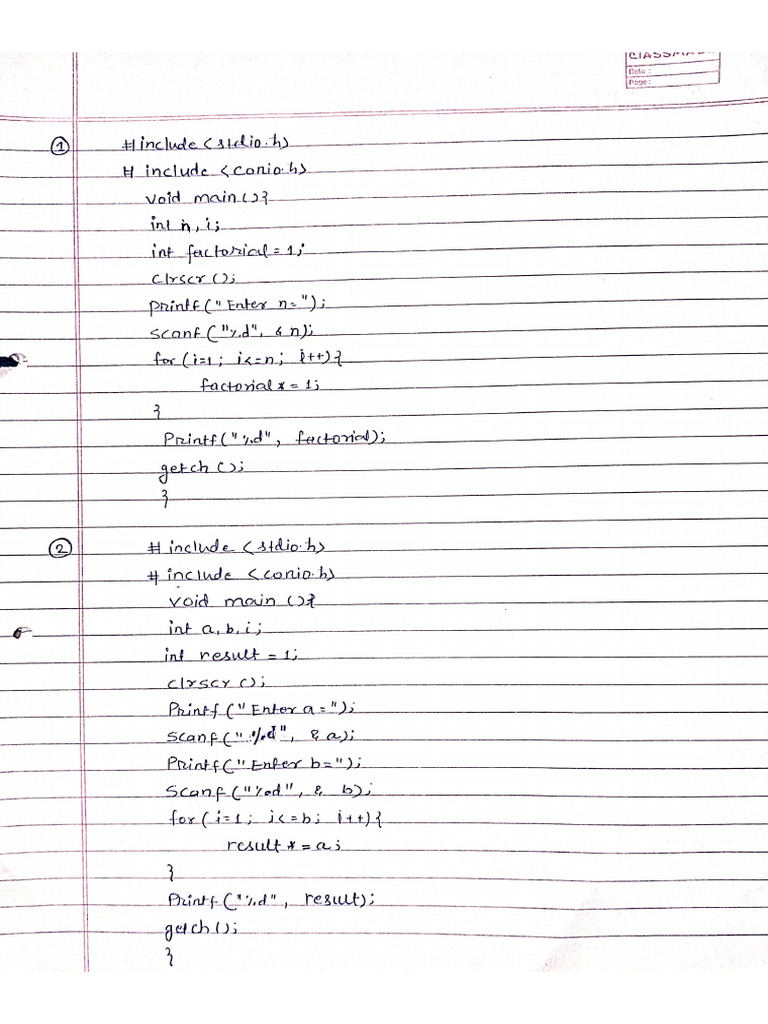 CLASSMATE
Date :
Page :
① #include <stdio.h>
# include <conio.h>
void main(){
int n, i;
int factorial = 1;
clrscr ();
printf ("Enter n=");
scanf ("%d", & n);
for (i=1; i<=n; i++){
factorial * = 1;
}
Printf ("%d", factorial);
getch ();
}
② # include <stdio.h>
# include <conio.h>
void main (){
int a, b, i;
int result = 1;
clrscr ();
Printf ("Enter a=");
scanf ("%d", & a);
Printf ("Enter b=");
Scanf ("%d", & b);
for (i=1; i<=b; i++){
result * = a;
}
Printf ("%d", result);
getch ();
}